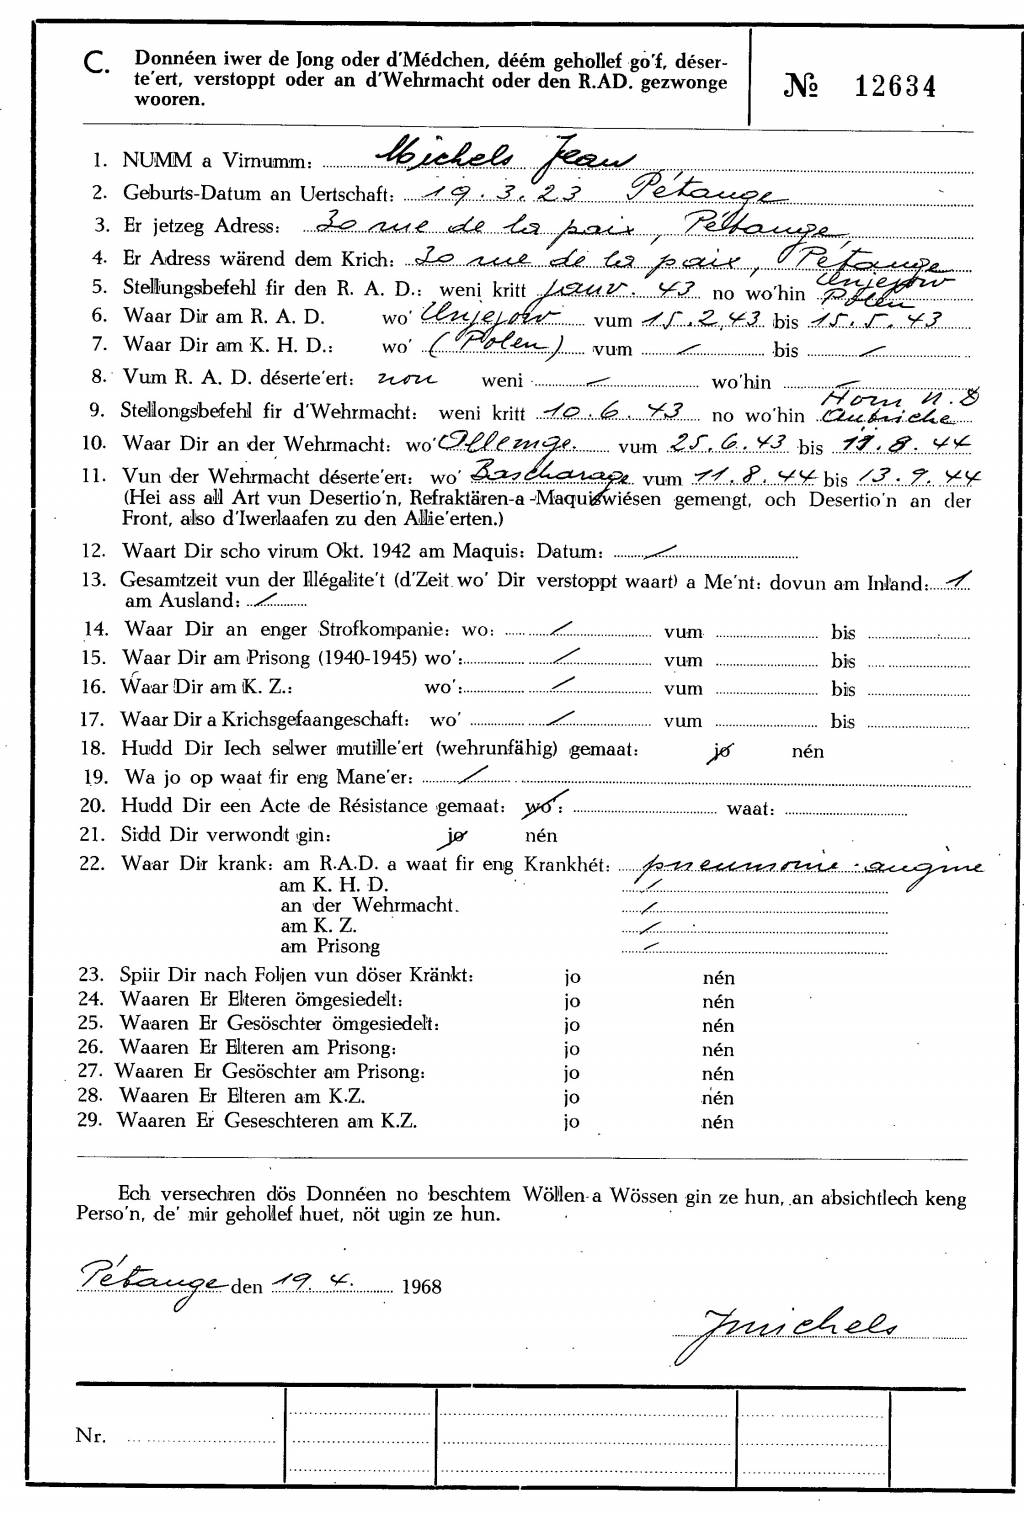 C. Donnéen iwer de Jong oder d'Médchen, déém gehollef go'f, déser-
te'ert, verstoppt oder an d'Wehrmacht oder den R.AD. gezwonge
wooren.
№ 12634
1. NUMM a Virnumm: Michels Jean
2. Geburts-Datum an Uertschaft: 19.3.23 Pétange
3. Er jetzeg Adress: 30 rue de la paix, Pétange,
4. Er Adress wärend dem Krich: 30 rue de la paix, Pétange
5. Stellungsbefehl fir den R. A. D.: weni kritt janv. 43 no wo'hin Unjejow Polen
6. Waar Dir am R. A. D. wo' Unjejow vum 15.2.43 bis 15.5.43
7. Waar Dir am K. H. D.: wo' (Polen) vum / bis /
8. Vum R. A. D. déserte'ert: non weni / wo'hin /
9. Stellongsbefehl fir d'Wehrmacht: weni kritt 10.6.43 no wo'hin Horn N.D Autriche
10. Waar Dir an der Wehrmacht: wo' Allemge. vum 25.6.43 bis 11.8.44
11. Vun der Wehrmacht déserte'ert: wo' Bascharage vum 11.8.44 bis 13.9.44
(Hei ass all Art vun Desertio'n, Refraktären-a -Maquiswiésen gemengt, och Desertio'n an der
Front, also d'Iwerlaafen zu den Allie'erten.)
12. Waart Dir scho virum Okt. 1942 am Maquis: Datum: /
13. Gesamtzeit vun der Illégalite't (d'Zeit wo' Dir verstoppt waart) a Me'nt: dovun am Inland: 1
am Ausland: /
14. Waar Dir an enger Strofkompanie: wo: / vum bis
15. Waar Dir am Prisong (1940-1945) wo': / vum bis
16. Waar Dir am K. Z.: wo': / vum bis
17. Waar Dir a Krichsgefaangeschaft: wo' / vum bis
18. Hudd Dir Iech selwer mutille'ert (wehrunfähig) gemaat: jo nén
19. Wa jo op waat fir eng Mane'er: /
20. Hudd Dir een Acte de Résistance gemaat: wo': waat:
21. Sidd Dir verwondt gin: jo nén
22. Waar Dir krank: am R.A.D. a waat fir eng Krankhét: pneumonie - angine
am K. H. D. /
an der Wehrmacht. /
am K. Z. /
am Prisong /
23. Spiir Dir nach Foljen vun döser Kränkt: jo nén
24. Waaren Er Elteren ömgesiedelt: jo nén
25. Waaren Er Gesöschter ömgesiedelt: jo nén
26. Waaren Er Elteren am Prisong: jo nén
27. Waaren Er Gesöschter am Prisong: jo nén
28. Waaren Er Elteren am K.Z. jo nén
29. Waaren Er Geseschteren am K.Z. jo nén
Ech versechren dös Donnéen no beschtem Wöllen a Wössen gin ze hun, an absichtlech keng
Perso'n, de' mir gehollef huet, nöt ugin ze hun.
Pétange den 19. 4. 1968
Jmichels
Nr.